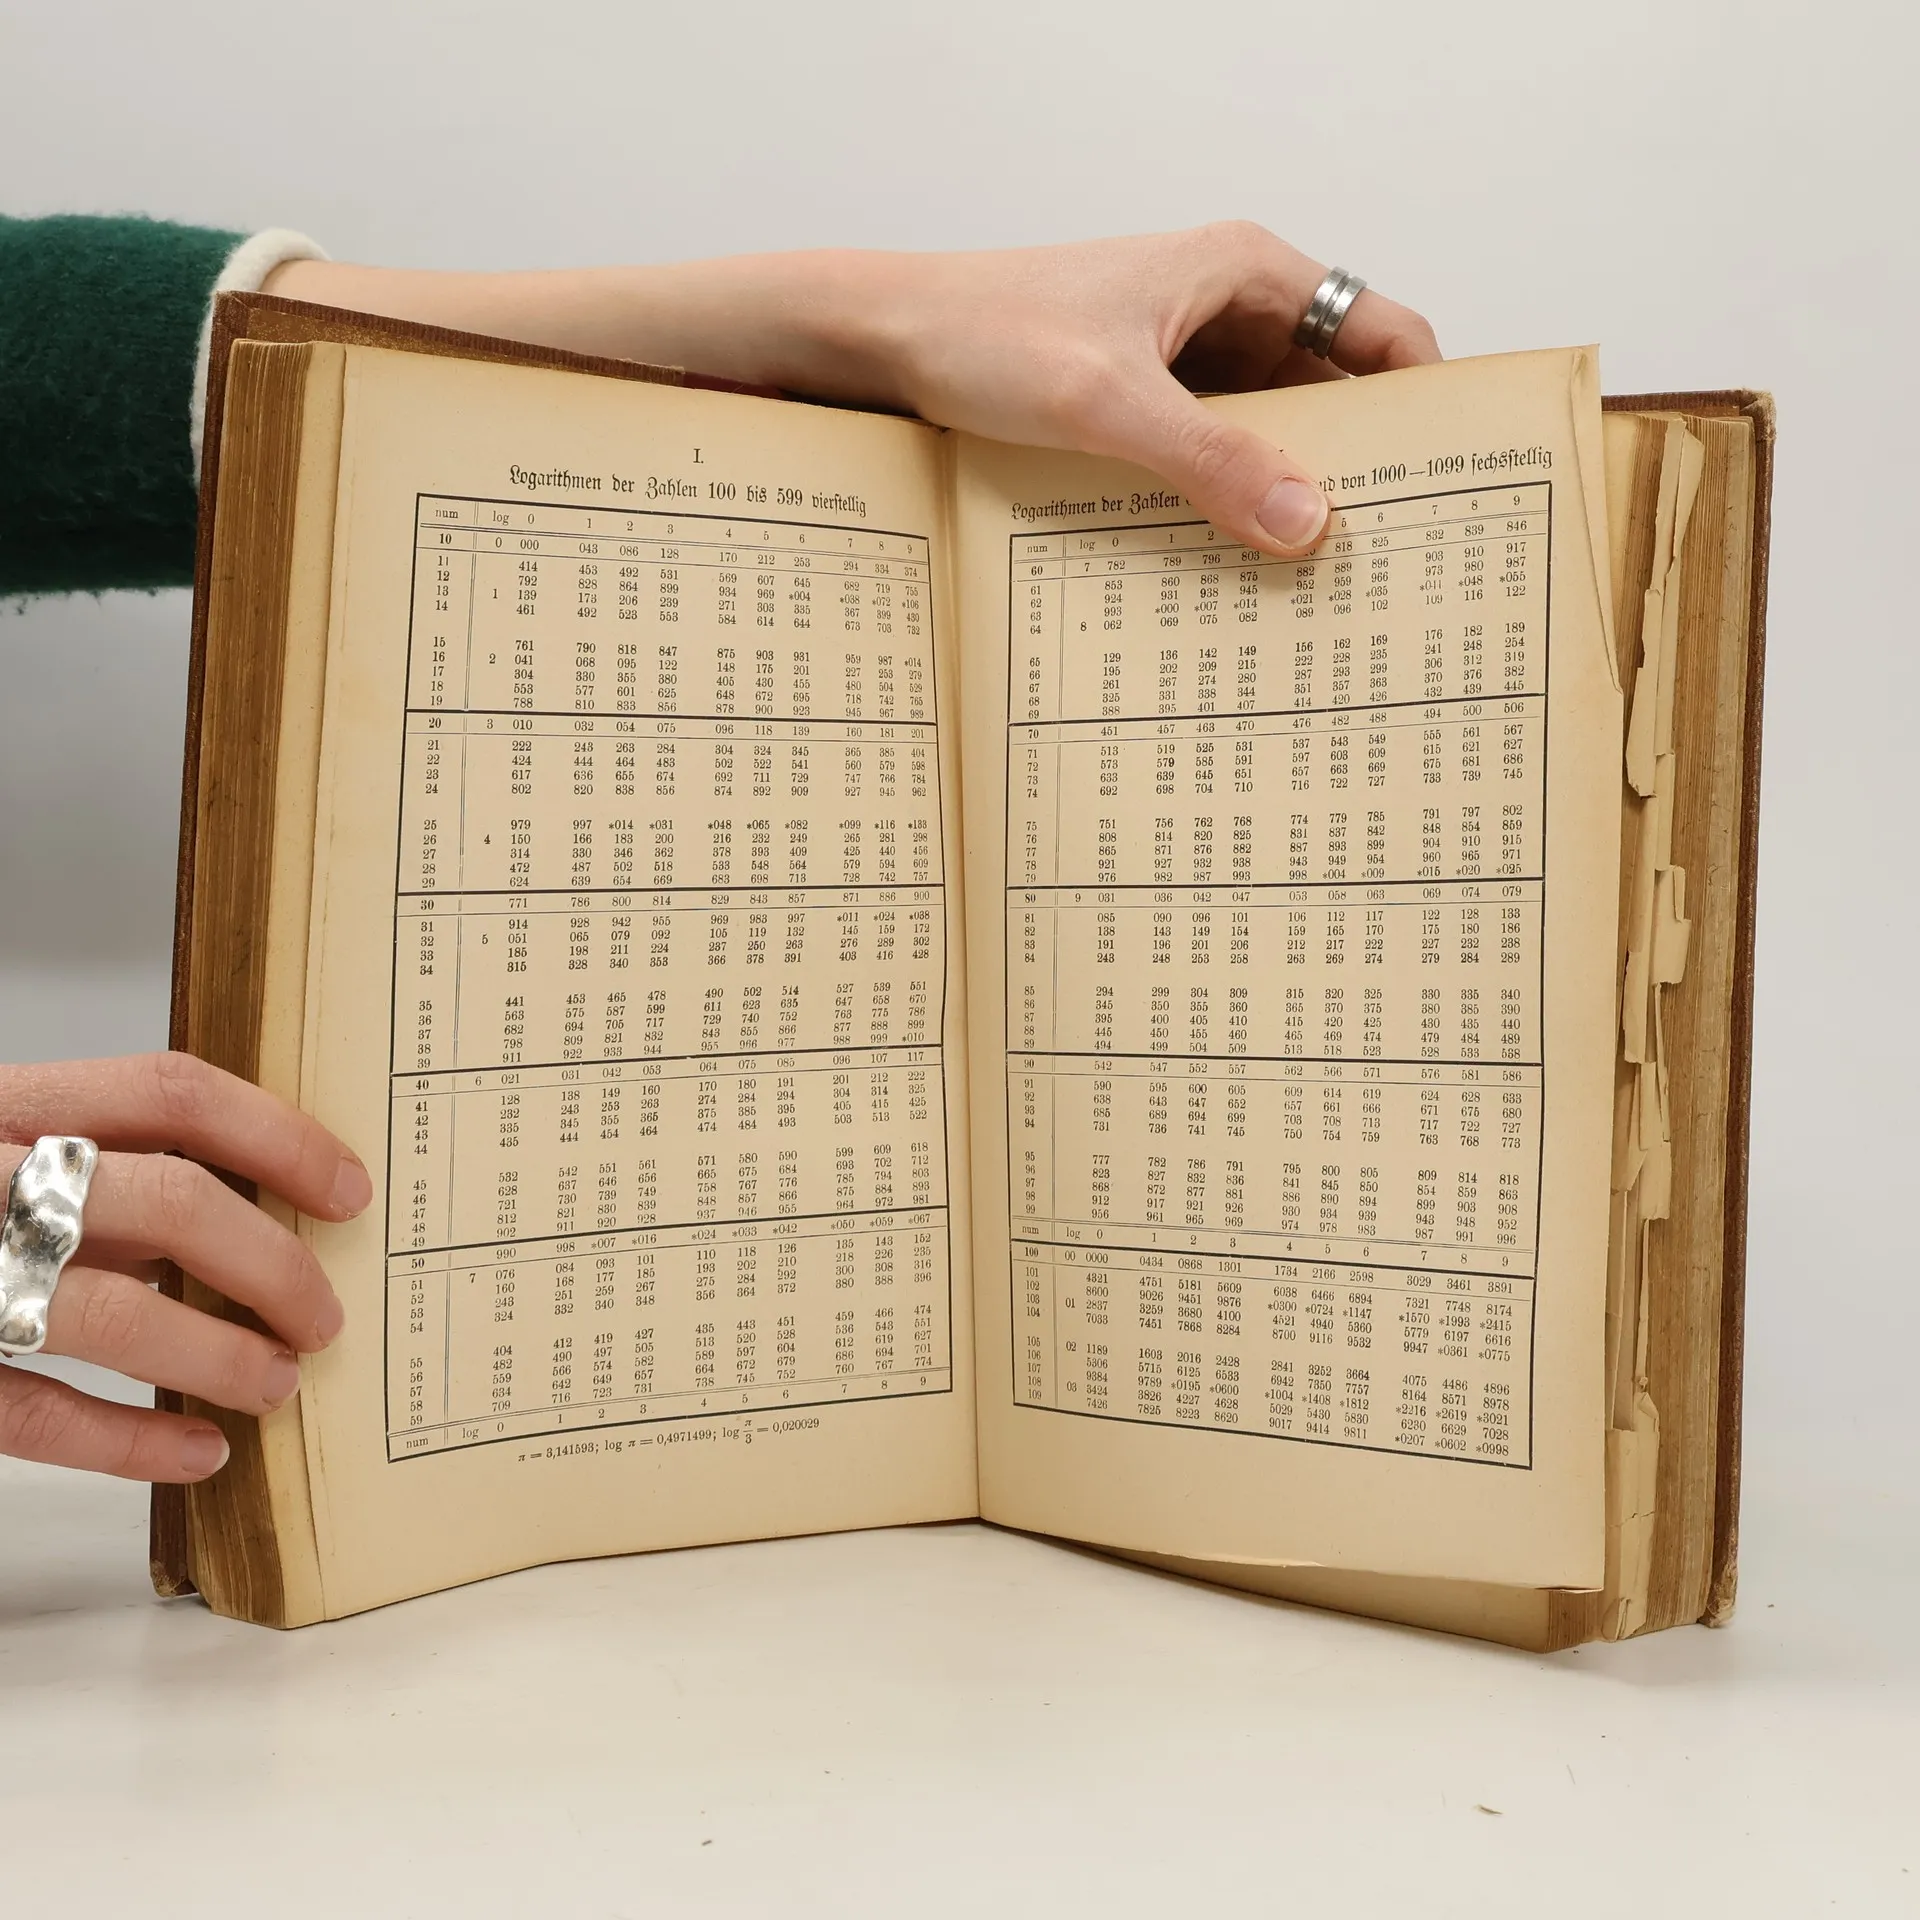 I.
Logarithmen der Zahlen 100 bis 599 vierstellig
num log 0 1 2 3 4 5 6 7 8 9
10 0 000 043 086 128 170 212 253 294 334 374
11 414 453 492 531 569 607 645 682 719 755
12 792 828 864 899 934 969 *004 *038 *072 *106
13 1 139 173 206 239 271 303 335 367 399 430
14 461 492 523 553 584 614 644 673 703 732
15 761 790 818 847 875 903 931 959 987 *014
16 2 041 068 095 122 148 175 201 227 253 279
17 304 330 355 380 405 430 455 480 504 529
18 553 577 601 625 648 672 695 718 742 765
19 788 810 833 856 878 900 923 945 967 989
20 3 010 032 054 075 096 118 139 160 181 201
21 222 243 263 284 304 324 345 365 385 404
22 424 444 464 483 502 522 541 560 579 598
23 617 636 655 674 692 711 729 747 766 784
24 802 820 838 856 874 892 909 927 945 962
25 979 997 *014 *031 *048 *065 *082 *099 *116 *133
26 4 150 166 183 200 216 232 249 265 281 298
27 314 330 346 362 378 393 409 425 440 456
28 472 487 502 518 533 548 564 579 594 609
29 624 639 654 669 683 698 713 728 742 757
30 771 786 800 814 829 843 857 871 886 900
31 914 928 942 955 969 983 997 *011 *024 *038
32 5 051 065 079 092 105 119 132 145 159 172
33 185 198 211 224 237 250 263 276 289 302
34 315 328 340 353 366 378 391 403 416 428
35 441 453 465 478 490 502 514 527 539 551
36 563 575 587 599 611 623 635 647 658 670
37 682 694 705 717 729 740 752 763 775 786
38 798 809 821 832 843 855 866 877 888 899
39 911 922 933 944 955 966 977 988 999 *010
40 6 021 031 042 053 064 075 085 096 107 117
41 128 138 149 160 170 180 191 201 212 222
42 232 243 253 263 274 284 294 304 314 325
43 335 345 355 365 375 385 395 405 415 425
44 435 444 454 464 474 484 493 503 513 522
45 532 542 551 561 571 580 590 599 609 618
46 628 637 646 656 665 675 684 693 702 712
47 721 730 739 749 758 767 776 785 794 803
48 812 821 830 839 848 857 866 875 884 893
49 902 911 920 928 937 946 955 964 972 981
50 990 998 *007 *016 *024 *033 *042 *050 *059 *067
51 7 076 084 093 101 110 118 126 135 143 152
52 160 168 177 185 193 202 210 218 226 235
53 243 251 259 267 275 284 292 300 308 316
54 324 332 340 348 356 364 372 380 388 396
55 404 412 419 427 435 443 451 459 466 474
56 482 490 497 505 513 520 528 536 543 551
57 559 566 574 582 589 597 604 612 619 627
58 634 642 649 657 664 672 679 686 694 701
59 709 716 723 731 738 745 752 760 767 774
num log 0 1 2 3 4 5 6 7 8 9
π = 3,141593; log π = 0,4971499; log π/3 = 0,020029
Logarithmen der Zahlen und von 1000—1099 sechsstellig
num log 0 1 2 5 6 7 8 9
60 7 782 789 796 803 818 825 832 839 846
61 853 860 868 875 882 889 896 903 910 917
62 924 931 938 945 952 959 966 973 980 987
63 993 *000 *007 *014 *021 *028 *035 *041 *048 *055
64 8 062 069 075 082 089 096 102 109 116 122
65 129 136 142 149 156 162 169 176 182 189
66 195 202 209 215 222 228 235 241 248 254
67 261 267 274 280 287 293 299 306 312 319
68 325 331 338 344 351 357 363 370 376 382
69 388 395 401 407 414 420 426 432 439 445
70 451 457 463 470 476 482 488 494 500 506
71 513 519 525 531 537 543 549 555 561 567
72 573 579 585 591 597 603 609 615 621 627
73 633 639 645 651 657 663 669 675 681 686
74 692 698 704 710 716 722 727 733 739 745
75 751 756 762 768 774 779 785 791 797 802
76 808 814 820 825 831 837 842 848 854 859
77 865 871 876 882 887 893 899 904 910 915
78 921 927 932 938 943 949 954 960 965 971
79 976 982 987 993 998 *004 *009 *015 *020 *025
80 9 031 036 042 047 053 058 063 069 074 079
81 085 090 096 101 106 112 117 122 128 133
82 138 143 149 154 159 165 170 175 180 186
83 191 196 201 206 212 217 222 227 232 238
84 243 248 253 258 263 269 274 279 284 289
85 294 299 304 309 315 320 325 330 335 340
86 345 350 355 360 365 370 375 380 385 390
87 395 400 405 410 415 420 425 430 435 440
88 445 450 455 460 465 469 474 479 484 489
89 494 499 504 509 513 518 523 528 533 538
90 542 547 552 557 562 566 571 576 581 586
91 590 595 600 605 609 614 619 624 628 633
92 638 643 647 652 657 661 666 671 675 680
93 685 689 694 699 703 708 713 717 722 727
94 731 736 741 745 750 754 759 763 768 773
95 777 782 786 791 795 800 805 809 814 818
96 823 827 832 836 841 845 850 854 859 863
97 868 872 877 881 886 890 894 899 903 908
98 912 917 921 926 930 934 939 943 948 952
99 956 961 965 969 974 978 983 987 991 996
num log 0 1 2 3 4 5 6 7 8 9
100 00 0000 0434 0868 1301 1734 2166 2598 3029 3461 3891
101 4321 4751 5181 5609 6038 6466 6894 7321 7748 8174
102 8600 9026 9451 9876 *0300 *0724 *1147 *1570 *1993 *2415
103 01 2837 3259 3680 4100 4521 4940 5360 5779 6197 6616
104 7033 7451 7868 8284 8700 9116 9532 9947 *0361 *0775
105 02 1189 1603 2016 2428 2841 3252 3664 4075 4486 4896
106 5306 5715 6125 6533 6942 7350 7757 8164 8571 8978
107 9384 9789 *0195 *0600 *1004 *1408 *1812 *2216 *2619 *3021
108 03 3424 3826 4227 4628 5029 5430 5830 6230 6629 7028
109 7426 7825 8223 8620 9017 9414 9811 *0207 *0602 *0998